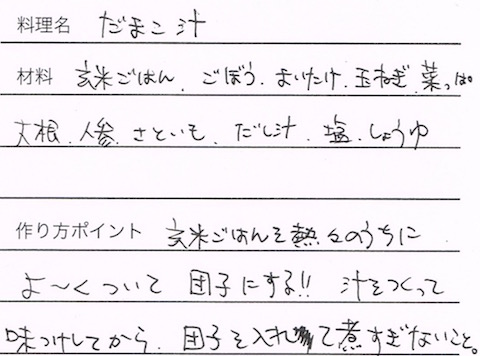 料理名 だまこ汁
材料 玄米ごはん、ごぼう、まいたけ、玉ねぎ、菜っぱ
大根、人参、さといも、だし汁、塩、しょうゆ
作り方ポイント 玄米ごはんを熱々のうちに
よ〜くついて 団子にする!! 汁をつくって
味つけしてから、団子を入れて煮すぎないこと。